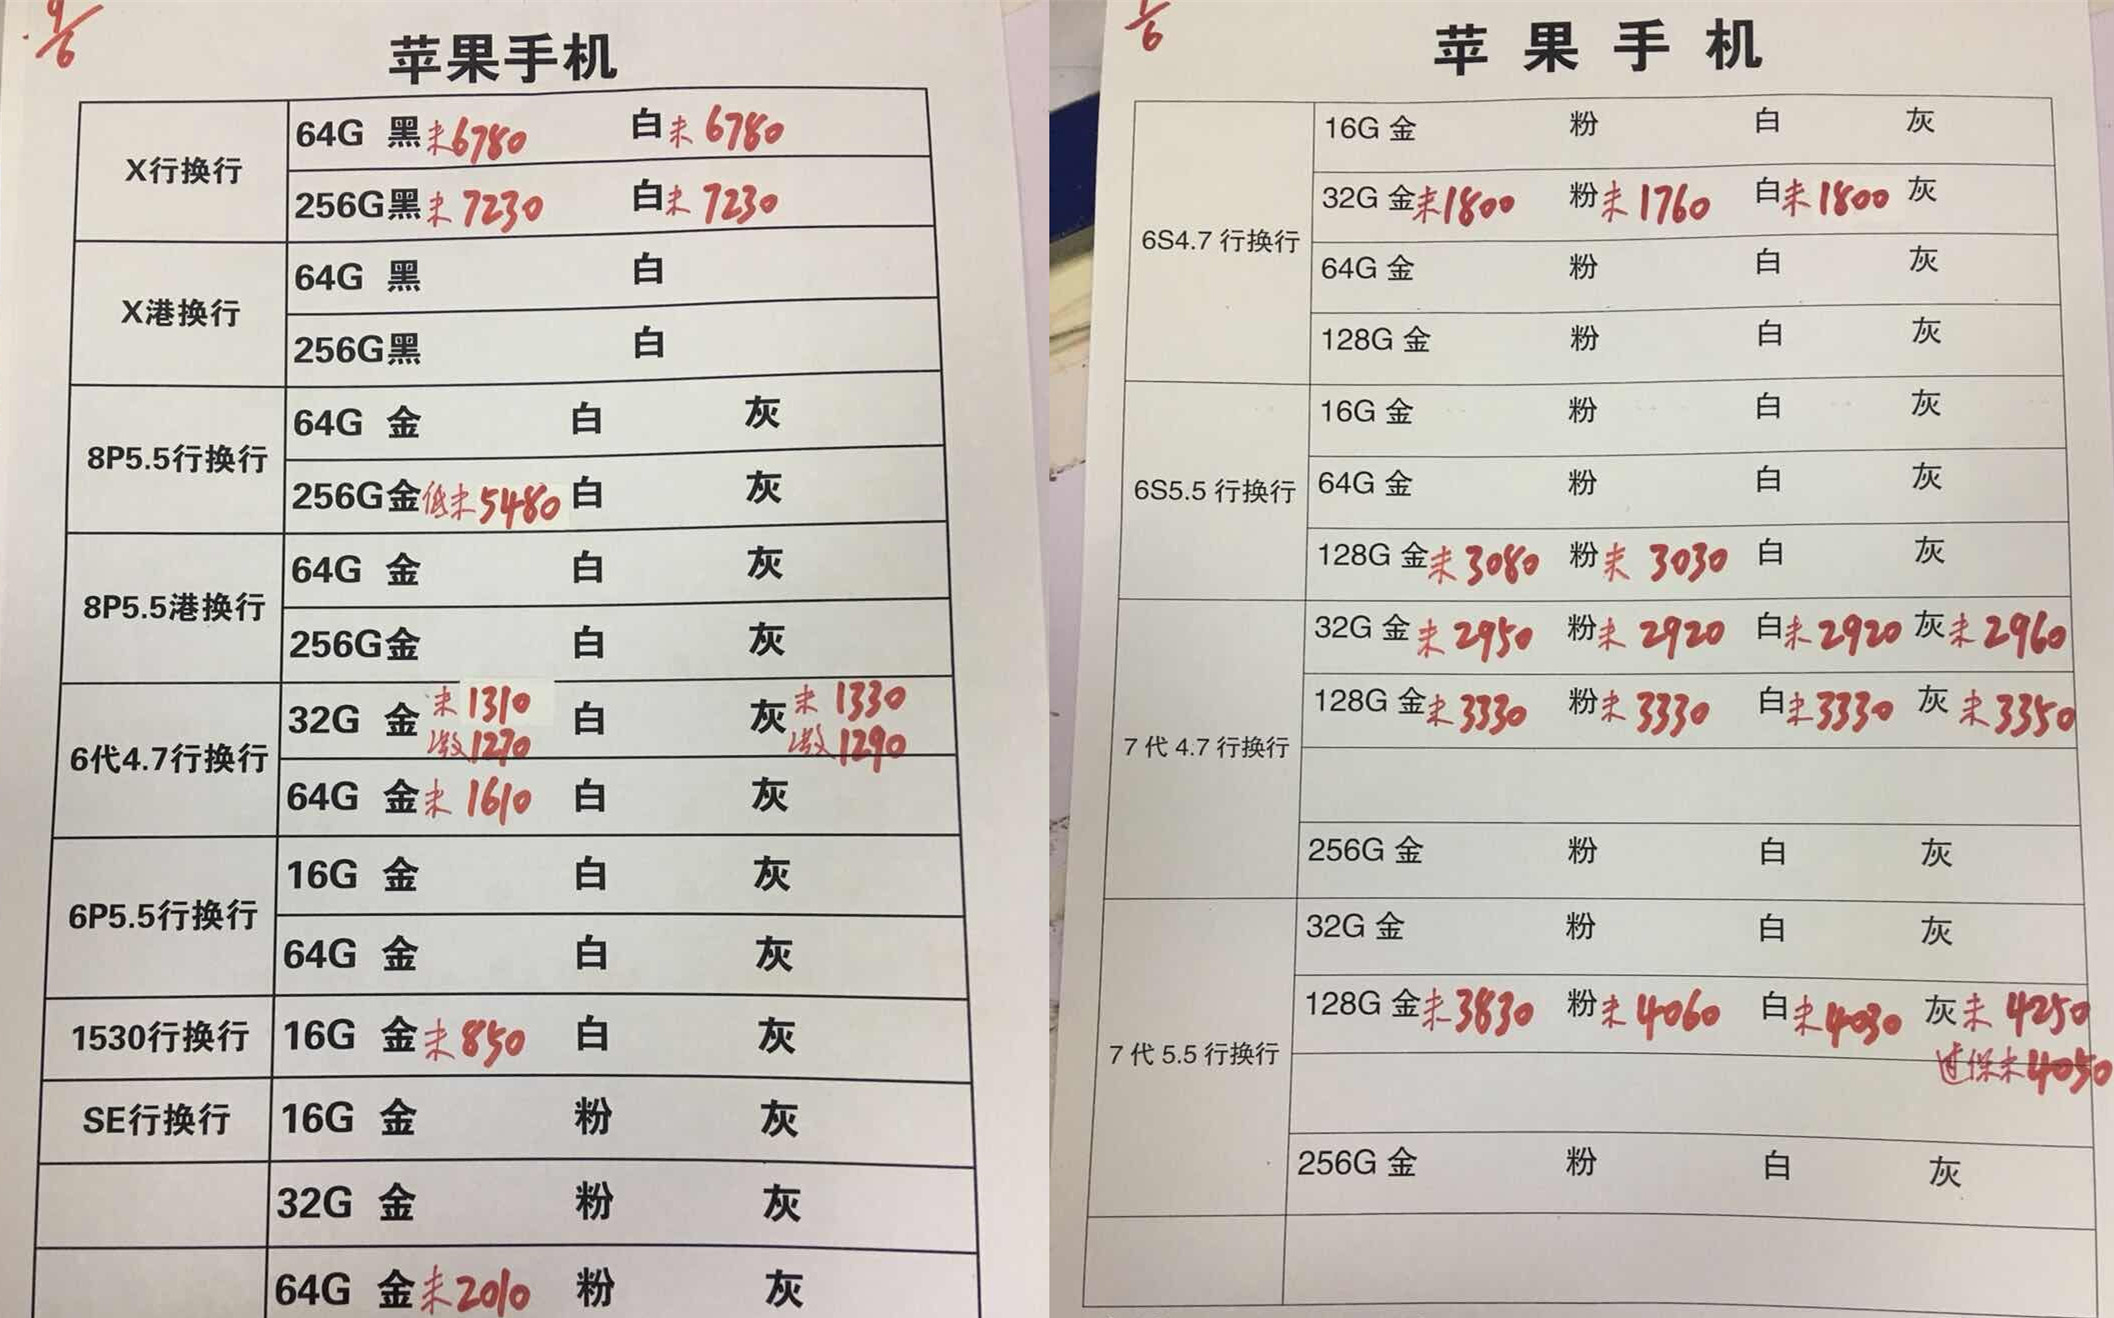 9/6
苹果手机
X行换行
64G 黑未6780 白未6780
256G黑未7230 白未7230
X港换行
64G 黑 白
256G黑 白
8P5.5行换行
64G 金 白 灰
256G金低未5480 白 灰
8P5.5港换行
64G 金 白 灰
256G金 白 灰
6代4.7行换行
32G 金未1310 白 灰未1330
激1270 激1290
64G 金未1610 白 灰
6P5.5行换行
16G 金 白 灰
64G 金 白 灰
1530行换行
16G 金未850 白 灰
SE行换行
16G 金 粉 灰
32G 金 粉 灰
64G 金未2010 粉 灰
/6
苹果手机
6S4.7行换行
16G 金 粉 白 灰
32G 金未1800 粉未1760 白未1800 灰
64G 金 粉 白 灰
128G 金 粉 白 灰
6S5.5行换行
16G 金 粉 白 灰
64G 金 粉 白 灰
128G 金未3080 粉未3030 白 灰
7代4.7行换行
32G 金未2950 粉未2920 白未2920 灰未2960
128G 金未3330 粉未3330 白未3330 灰未3350
256G 金 粉 白 灰
7代5.5行换行
32G 金 粉 白 灰
128G 金未3830 粉未4060 白未4030 灰未4250
过保未4050
256G 金 粉 白 灰